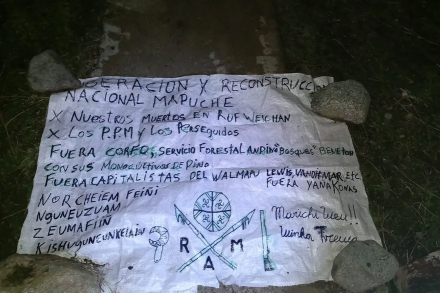 LIBERACION Y RECONSTRUCCION
NACIONAL MAPUCHE
X NUESTROS MUERTOS EN RUF WEICHAN
X LOS P.P.M Y LOS PERSEGUIDOS
FUERA CORFO, SERVICIO FORESTAL ANDINO "BOSQUES" BENETTON
CON SUS MONOCULTIVOS DE PINO
FUERA CAPITALISTAS DEL WALMAPU LEWIS, VANDITMAR ETC
FUERA YANAKONAS
NOR CHEIEM FEIÑI
NGUNEUZUAM
ZEUMAFIIÑ
KISHUGUNEUNKELAIÑ
R M
A
Marichi Weu!!